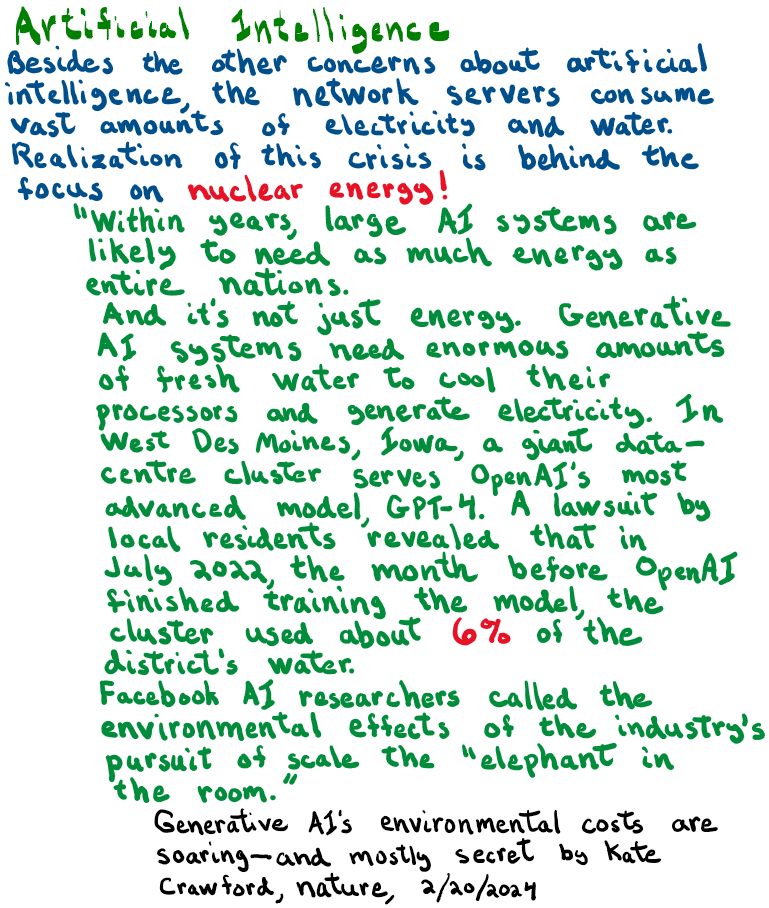 Artificial Intelligence
Besides the other concerns about artificial
intelligence, the network servers consume
vast amounts of electricity and water.
Realization of this crisis is behind the
focus on nuclear energy!
"Within years, large AI systems are
likely to need as much energy as
entire nations.
And it's not just energy. Generative
AI systems need enormous amounts
of fresh water to cool their
processors and generate electricity. In
West Des Moines, Iowa, a giant data-
centre cluster serves OpenAI's most
advanced model, GPT-4. A lawsuit by
local residents revealed that in
July 2022, the month before OpenAI
finished training the model, the
cluster used about 6% of the
district's water.
Facebook AI researchers called the
environmental effects of the industry's
pursuit of scale the "elephant in
the room."
Generative AI's environmental costs are
soaring—and mostly secret by Kate
Crawford, nature, 2/20/2024